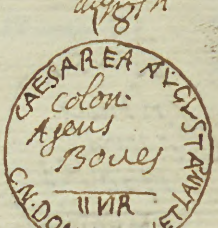 CAESAREA AVGVSTA
colon:
Agens
Boues
IIVIR
CN. DOM